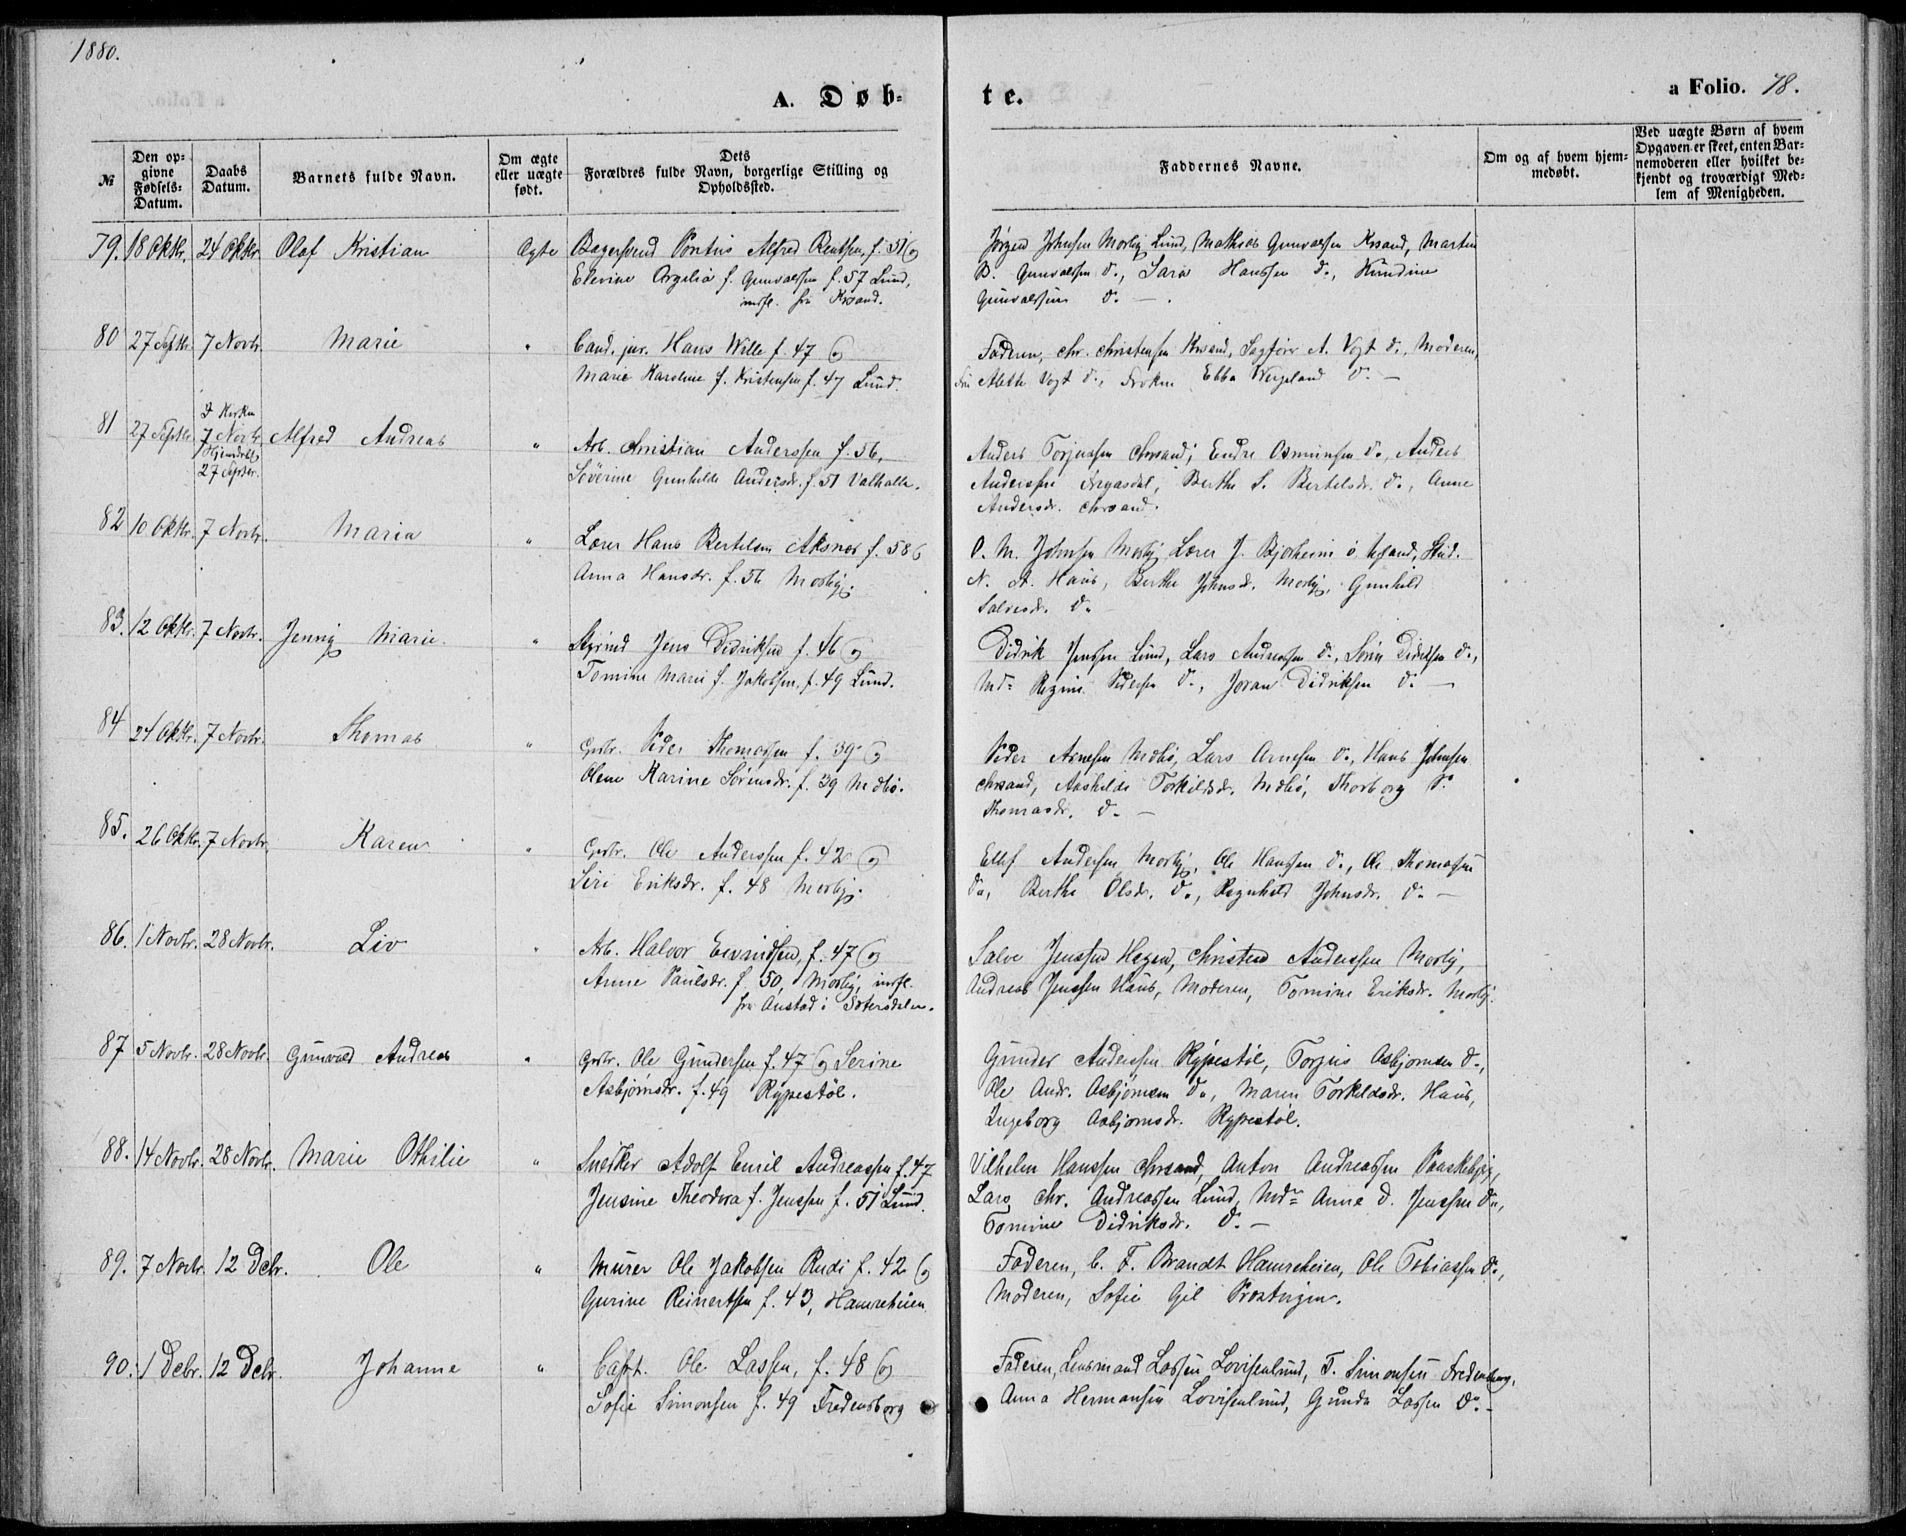 1880.
A. Døb-
te.
a Folio. 78.
№
Den op-
givne
Fødsels-
Datum.
Daabs
Datum.
Barnets fulde Navn.
Om ægte
eller uægte
født.
Dets
Forældres fulde Navn, borgerlige Stilling og
Opholdssted.
Faddernes Navne.
Om og af hvem hjem-
medøbt.
Ved uægte Børn af hvem
Opgaven er skeet, enten Bar-
nemoderen eller hvilket be-
kjendt og troværdigt Med-
lem af Menigheden.
79. 18 Oktbr. 24 Oktbr Olaf Kristian Ægte Bagersvend Pontus Alfred Bentsen, f. 51 og
Elevine Argelia f. Gunvalssen f. 57 Lund,
indfl. fra Krsand.
Jørgen Johnsen Mosby Lund, Mathias Gunvalsen Krsand, Martin
B. Gunvalssen do., Sara Hanssen do., Kundine
Gunvalssen do. —
80 27 Septbr. 7 Novbr. Marie " Cand. jur. Hans Wille f. 47 og
Marie Karoline f. Kristensen f. 47 Lund.
Faderen, Chr. Christensen Krsand, Sagfører A. Vogt do., Moderen,
Fru Alette Vogt do., Frøken Ebba Wergeland do. —
81 27 Septbr. I Kirken
7 Novbr
Hjemdøbt
27 Septbr. Alfred Andreas " Arb. Christian Anderssen f. 56,
Søverine Gunhilde Andersdr. f. 51 Valhalla.
Anders Torjussen Chrsand, Endre Osmunsen do., Anders
Anderssen Aegasdal, Berthe S. Bertelsdr. do., Anne
Andersdr. Chrsand.
82 10 Oktbr. 7 Novbr. Maria " Lærer Hans Bertelsen Aksnes f. 58 &
Anna Hansdr. f. 56 Mosby.
O. M. Johnsen Mosby, Lærer J. Bjorheim i Krsand, Stud.
N. A. Haus, Berthe Johnsdr. Mosby, Gunhild
Salvesdr. do.
83. 12 Oktbr. 7 Novbr. Jenny Marie. " Styrmd Jens Didriksen f. 46 og
Tomine Marie f. Jakobsen, f. 49 Lund.
Didrik Jenssen Lund, Lars Andreassen do., Sørin Didriksen do.,
Md= Regine Pedersen do., Joran Didriksen do. —
84 24 Oktbr. 7 Novbr. Thomas " Grbr. Peder Thomassen f. 39 og
Olene Karine Sørensdr. f. 39 Medbø.
Peder Arnesen Medbø, Lars Arnesen do., Hans Johnsen
Chrsand, Aashilde Torkildsdr. Medbø, Thorborg P.
Thomasdr. do. —
85. 26 Oktbr. 7 Novbr. Karen " Grbr. Ole Anderssen f. 42 og
Siri Eriksdr. f. 48 Mosby.
Ellef Andersen Mosby, Ole Hanssen do., Ole Thomassen
do., Berthe Olsdr. do., Regnhild Johnsdr. do. —
86. 1 Novbr. 28 Novbr. Liv " Arb. Halvor Eivindsen, f. 47 og
Anne Paulsdr. f. 50, Mosby, indfl.
fra Austad i Setersdalen.
Salve Jenssen Hagen, Christen Anderssen Mosby,
Andreas Jenssen Haus, Moderen, Tomine Eriksdr. Mosby.
87 5 Novbr. 28 Novbr. Gunvald Andreas " Grbr. Ole Gundersen f. 47 og Serine
Asbjørnsdr. f. 49 Rypestøl.
Gunder Anderssen Rypestøl, Torjus Asbjornsen do.,
Ole Andr. Asbjornsen do., Maren Torkeldsdr. Haus,
Ingeborg Asbjornsdr. Rypestøl.
88. 14 Novbr. 28 Novbr. Marie Othilie " Snedker Adolf Emil Andreassen f. 47
Jensine Theodora f. Jenssen f. 51 Lund.
Vilhelm Hanssen Chrsand, Anton Andreassen Paaskebjerg,
Lars Chr. Andreassen Lund, Md= Anne D. Jenssen do.,
Tomine Didriksdr. do. —
89. 7 Novbr. 12 Debr. Ole " Murer Ole Jakobsen Rudi f. 42 og
Gurine Reinertsen f. 43, Hamreheien
Faderen, C. F. Brandt Hamreheien, Ole Tobiassen do.,
Moderen, Sofie Gil Prostvigen.
90. 1 Debr. 12 Debr. Johanne " Capt. Ole Lassen, f. 48 og
Sofie Simonsen f. 49 Fredensborg
Faderen, Lensmand Lassen Lovisenlund, T. Simonsen Fredensborg,
Anna Hermansen Lovisenlund, Gunda Lassen do. -